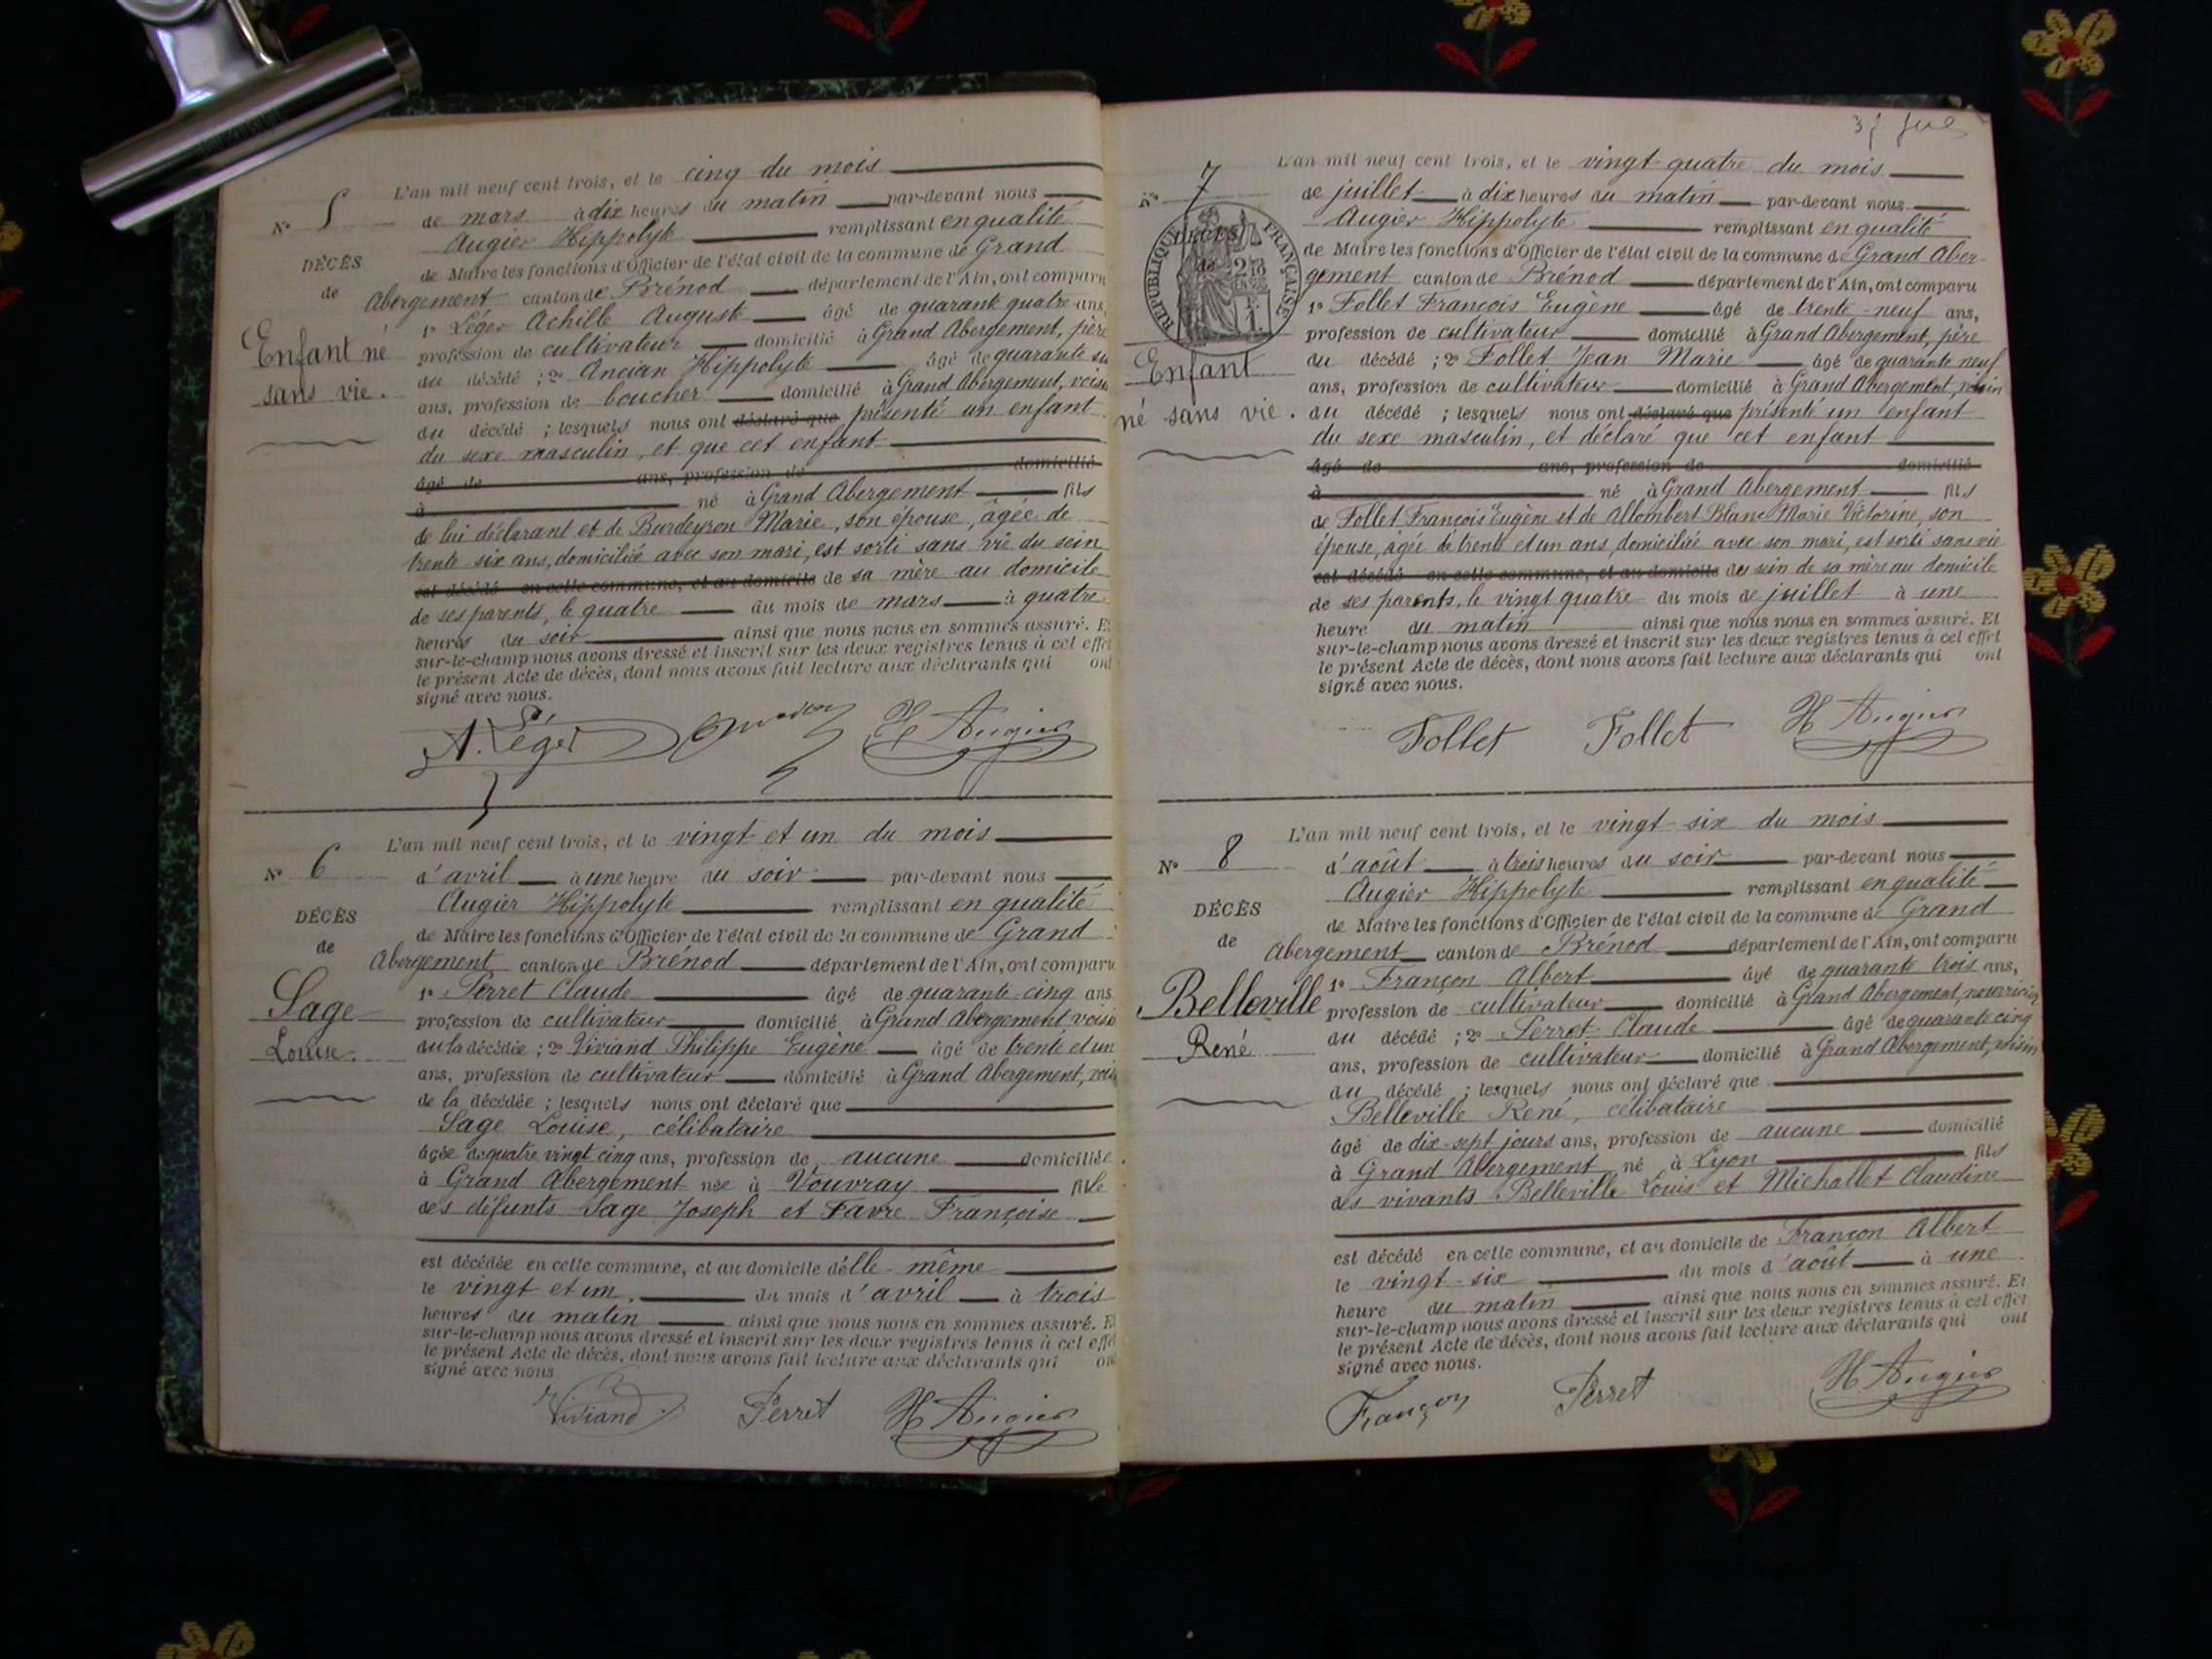 L'an mil neuf cent trois, et le cinq du mois
N° 5 de mars à dix heures du matin par-devant nous
Augier Hippolyte remplissant en qualité
DÉCÈS de Maire les fonctions d'Officier de l'état civil de la commune de Grand
de Abergement canton de Brénod département de l'Ain, ont comparu
1° Léger Achille Auguste âgé de quarante quatre ans,
Enfant né profession de cultivateur domicilié à Grand Abergement, père
du décédé ; 2° Ancian Hippolyte âgé de quarante six
sans vie. ans, profession de boucher domicilié à Grand Abergement, voisin
du décédé ; lesquels nous ont déclaré que présenté un enfant
du sexe masculin, et que cet enfant
âgé de ans, profession de domicilié
à né à Grand Abergement fils
de lui déclarant et de Burdeyron Marie, son épouse, âgée de
trente six ans, domiciliée avec son mari, est sorti sans vie du sein
est décédé en cette commune, et au domicile de sa mère au domicile
de ses parents, le quatre du mois de mars à quatre
heures du soir ainsi que nous nous en sommes assuré. Et
sur-le-champ nous avons dressé et inscrit sur les deux registres tenus à cet effet
le présent Acte de décès, dont nous avons fait lecture aux déclarants qui ont
signé avec nous.
A. Léger H Augier
L'an mil neuf cent trois, et le vingt et un du mois
N° 6 d'avril à une heure du soir par-devant nous
Augier Hippolyte remplissant en qualité
DÉCÈS de Maire les fonctions d'Officier de l'état civil de la commune de Grand
de Abergement canton de Brénod département de l'Ain, ont comparu
1° Perret Claude âgé de quarante-cinq ans
Sage profession de cultivateur domicilié à Grand Abergement, voisin
Louise. du la décédée ; 2° Viviand Philippe Eugène âgé de trente et un
ans, profession de cultivateur domicilié à Grand Abergement, voisin
de la décédée ; lesquels nous ont déclaré que
Sage Louise, célibataire
âgée de quatre vingt cinq ans, profession de aucune domiciliée
à Grand Abergement née à Vouvray fille
des défunts Sage Joseph et Favre Françoise
est décédée en cette commune, et au domicile d'elle-même
le vingt et un, du mois d'avril à trois
heures du matin ainsi que nous nous en sommes assuré. Et
sur-le-champ nous avons dressé et inscrit sur les deux registres tenus à cet effet
le présent Acte de décès, dont nous avons fait lecture aux déclarants qui ont
signé avec nous
Viviand Perret H Augier
L'an mil neuf cent trois, et le vingt-quatre du mois
N° 7 de juillet à dix heures du matin par-devant nous
Augier Hippolyte remplissant en qualité
DÉCÈS de Maire les fonctions d'Officier de l'état civil de la commune de Grand Aber-
de gement canton de Brénod département de l'Ain, ont comparu
RÉPUBLIQUE FRANÇAISE
1° Follet François Eugène âgé de trente-neuf ans,
profession de cultivateur domicilié à Grand Abergement, père
Enfant du décédé ; 2° Follet Jean Marie âgé de quarante neuf
ans, profession de cultivateur domicilié à Grand Abergement, voisin
né sans vie. du décédé ; lesquels nous ont déclaré que présenté un enfant
du sexe masculin, et déclaré que cet enfant
âgé de ans, profession de domicilié
à né à Grand Abergement fils
de Follet François Eugène et de Allombert Blanc Marie Victorine, son
épouse, âgée de trente et un ans, domiciliée avec son mari, est sorti sans vie
est décédé en cette commune, et au domicile du sein de sa mère au domicile
de ses parents, le vingt quatre du mois de juillet à une
heure du matin ainsi que nous nous en sommes assuré. Et
sur-le-champ nous avons dressé et inscrit sur les deux registres tenus à cet effet
le présent Acte de décès, dont nous avons fait lecture aux déclarants qui ont
signé avec nous.
Follet Follet H Augier
L'an mil neuf cent trois, et le vingt-six du mois
N° 8 d'août à trois heures du soir par-devant nous
Augier Hippolyte remplissant en qualité
DÉCÈS de Maire les fonctions d'Officier de l'état civil de la commune de Grand
de Abergement canton de Brénod département de l'Ain, ont comparu
1° Françon Albert âgé de quarante trois ans,
Belleville profession de cultivateur domicilié à Grand Abergement, nourricier
du décédé ; 2° Perret Claude âgé de quarante cinq
René ans, profession de cultivateur domicilié à Grand Abergement, voisin
du décédé ; lesquels nous ont déclaré que
Belleville René, célibataire
âgé de dix-sept jours ans, profession de aucune domicilié
à Grand Abergement né à Lyon fils
des vivants Belleville Louis et Michallet Claudine
est décédé en cette commune, et au domicile de Françon Albert
le vingt-six du mois d'août à une
heure du matin ainsi que nous nous en sommes assuré. Et
sur-le-champ nous avons dressé et inscrit sur les deux registres tenus à cet effet
le présent Acte de décès, dont nous avons fait lecture aux déclarants qui ont
signé avec nous.
Françon Perret H Augier